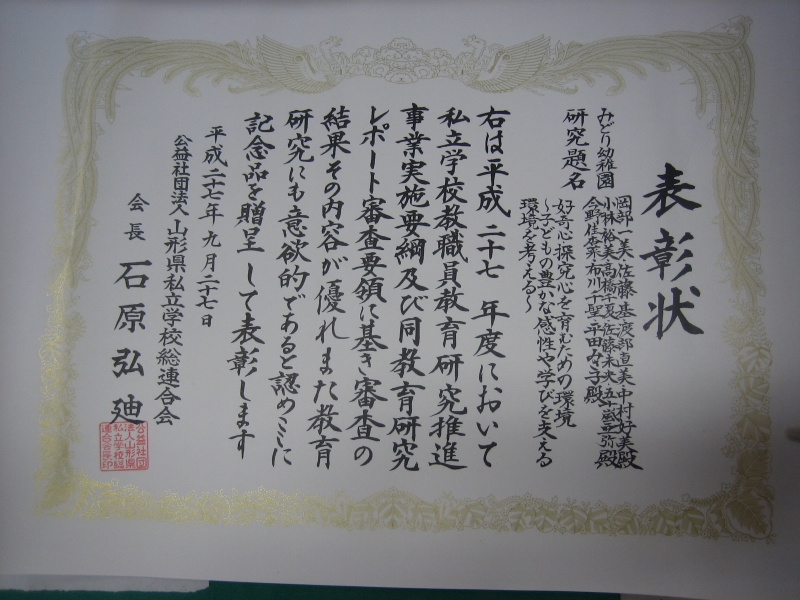 表彰状
みどり幼稚園
岡部一美 佐藤基 渡部直美 中村好美殿
小林裕美 高橋千夏 佐藤未央 五十嵐 弥殿
今野佳奈 布川千聖 平田みさ子殿
研究題名
好奇心探究心を育むための環境
〜子どもの豊かな感性や学びを支える
環境を考える〜
右は平成二十七年度において
私立学校教職員教育研究推進
事業実施要綱及び同教育研究
レポート審査要領に基き審査の
結果その内容が優れまた教育
研究にも意欲的であると認めここに
記念品を贈呈して表彰します
平成二十七年九月二十七日
公益社団法人山形県私立学校総連合会
会長 石原弘廸
公益社団
法人山形県
私立学校総
連合会長印